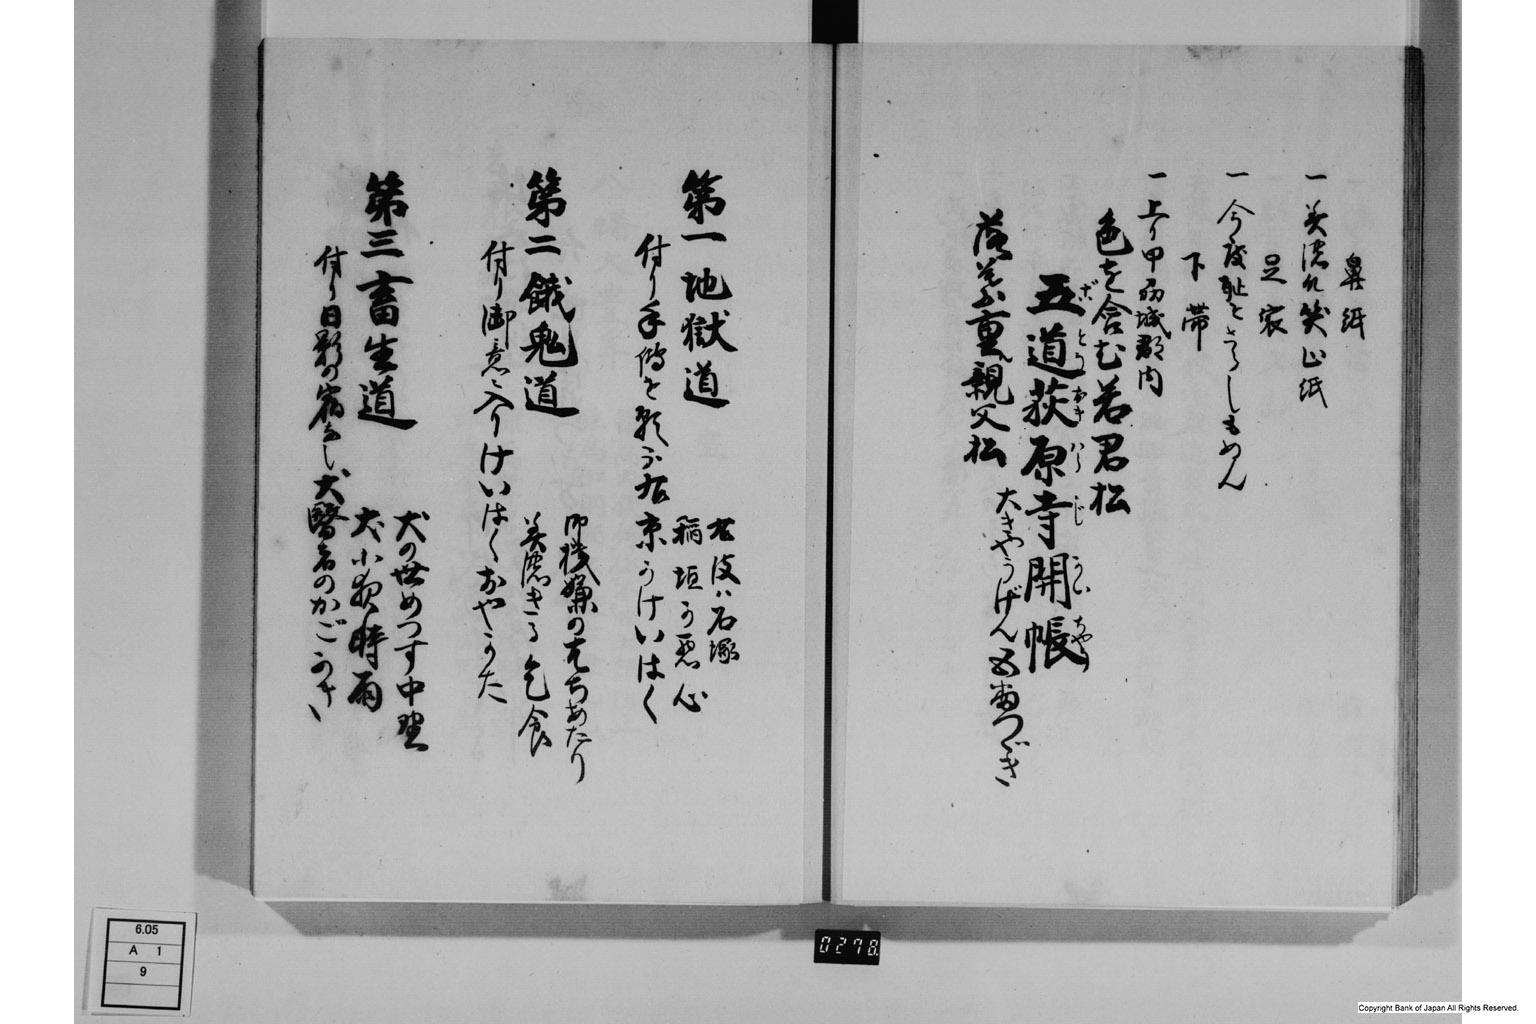 鼻紙
一 美濃九笑止紙
足袋
一 今度恥をさらしもめん
下帯
一 上り甲府城郡内
色を含む若君松
五道荻原寺開帳
ごとうおきはらじかいちやう
大きやうげん五番つゞき
落葉重親父松
第一地獄道
老後ハ石塚
稲垣う悪心
付り手代を
京うけいはく
第二餓鬼道
御機嫌の
あたり
美麗きる乞食
付り御意ニ入りけいはくおやかた
第三畜生道
犬の世めつす中野
犬小屋時雨
付り日影の宿なし犬醫者のかご
6.05
A 1
9
0278
Copyright Bank of Japan All Rights Reserved.